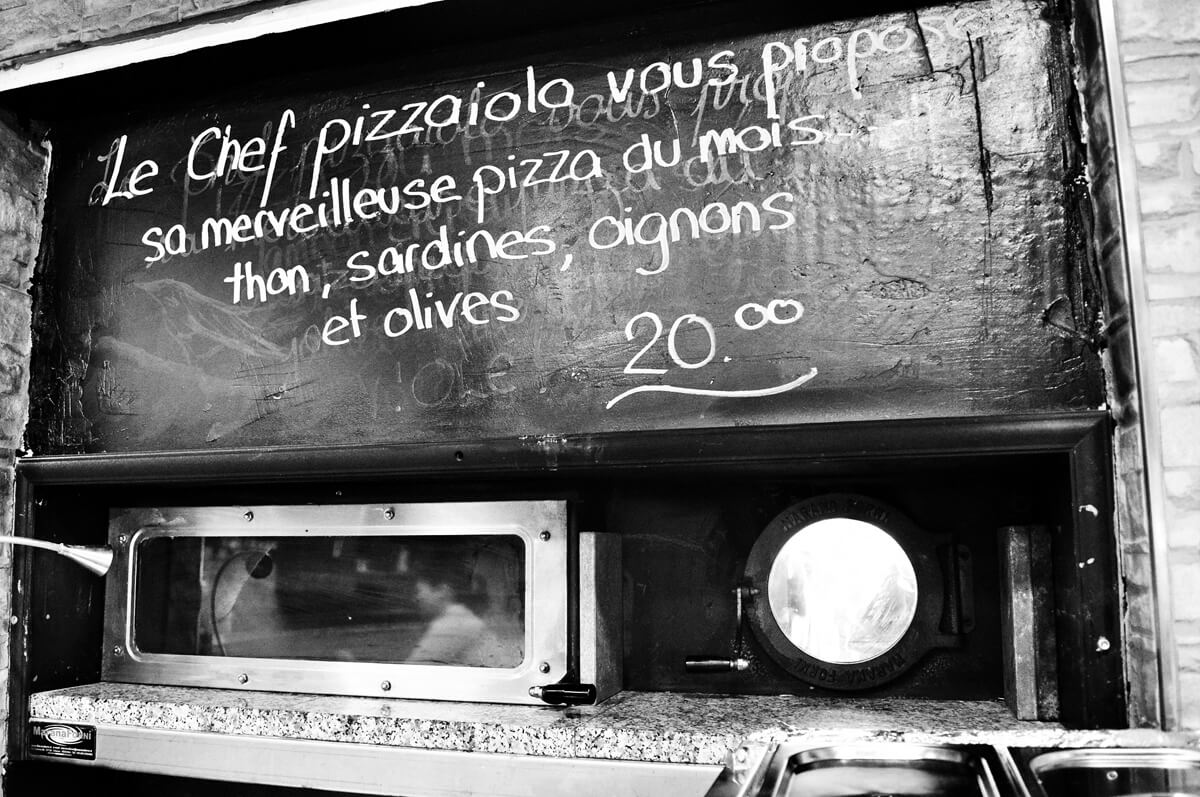 Le Chef pizzaiolo vous propose
sa merveilleuse pizza du mois...
thon, sardines, oignons
et olives
20.00
MARANA FORNI
MARANA FORNI
MaranaForni